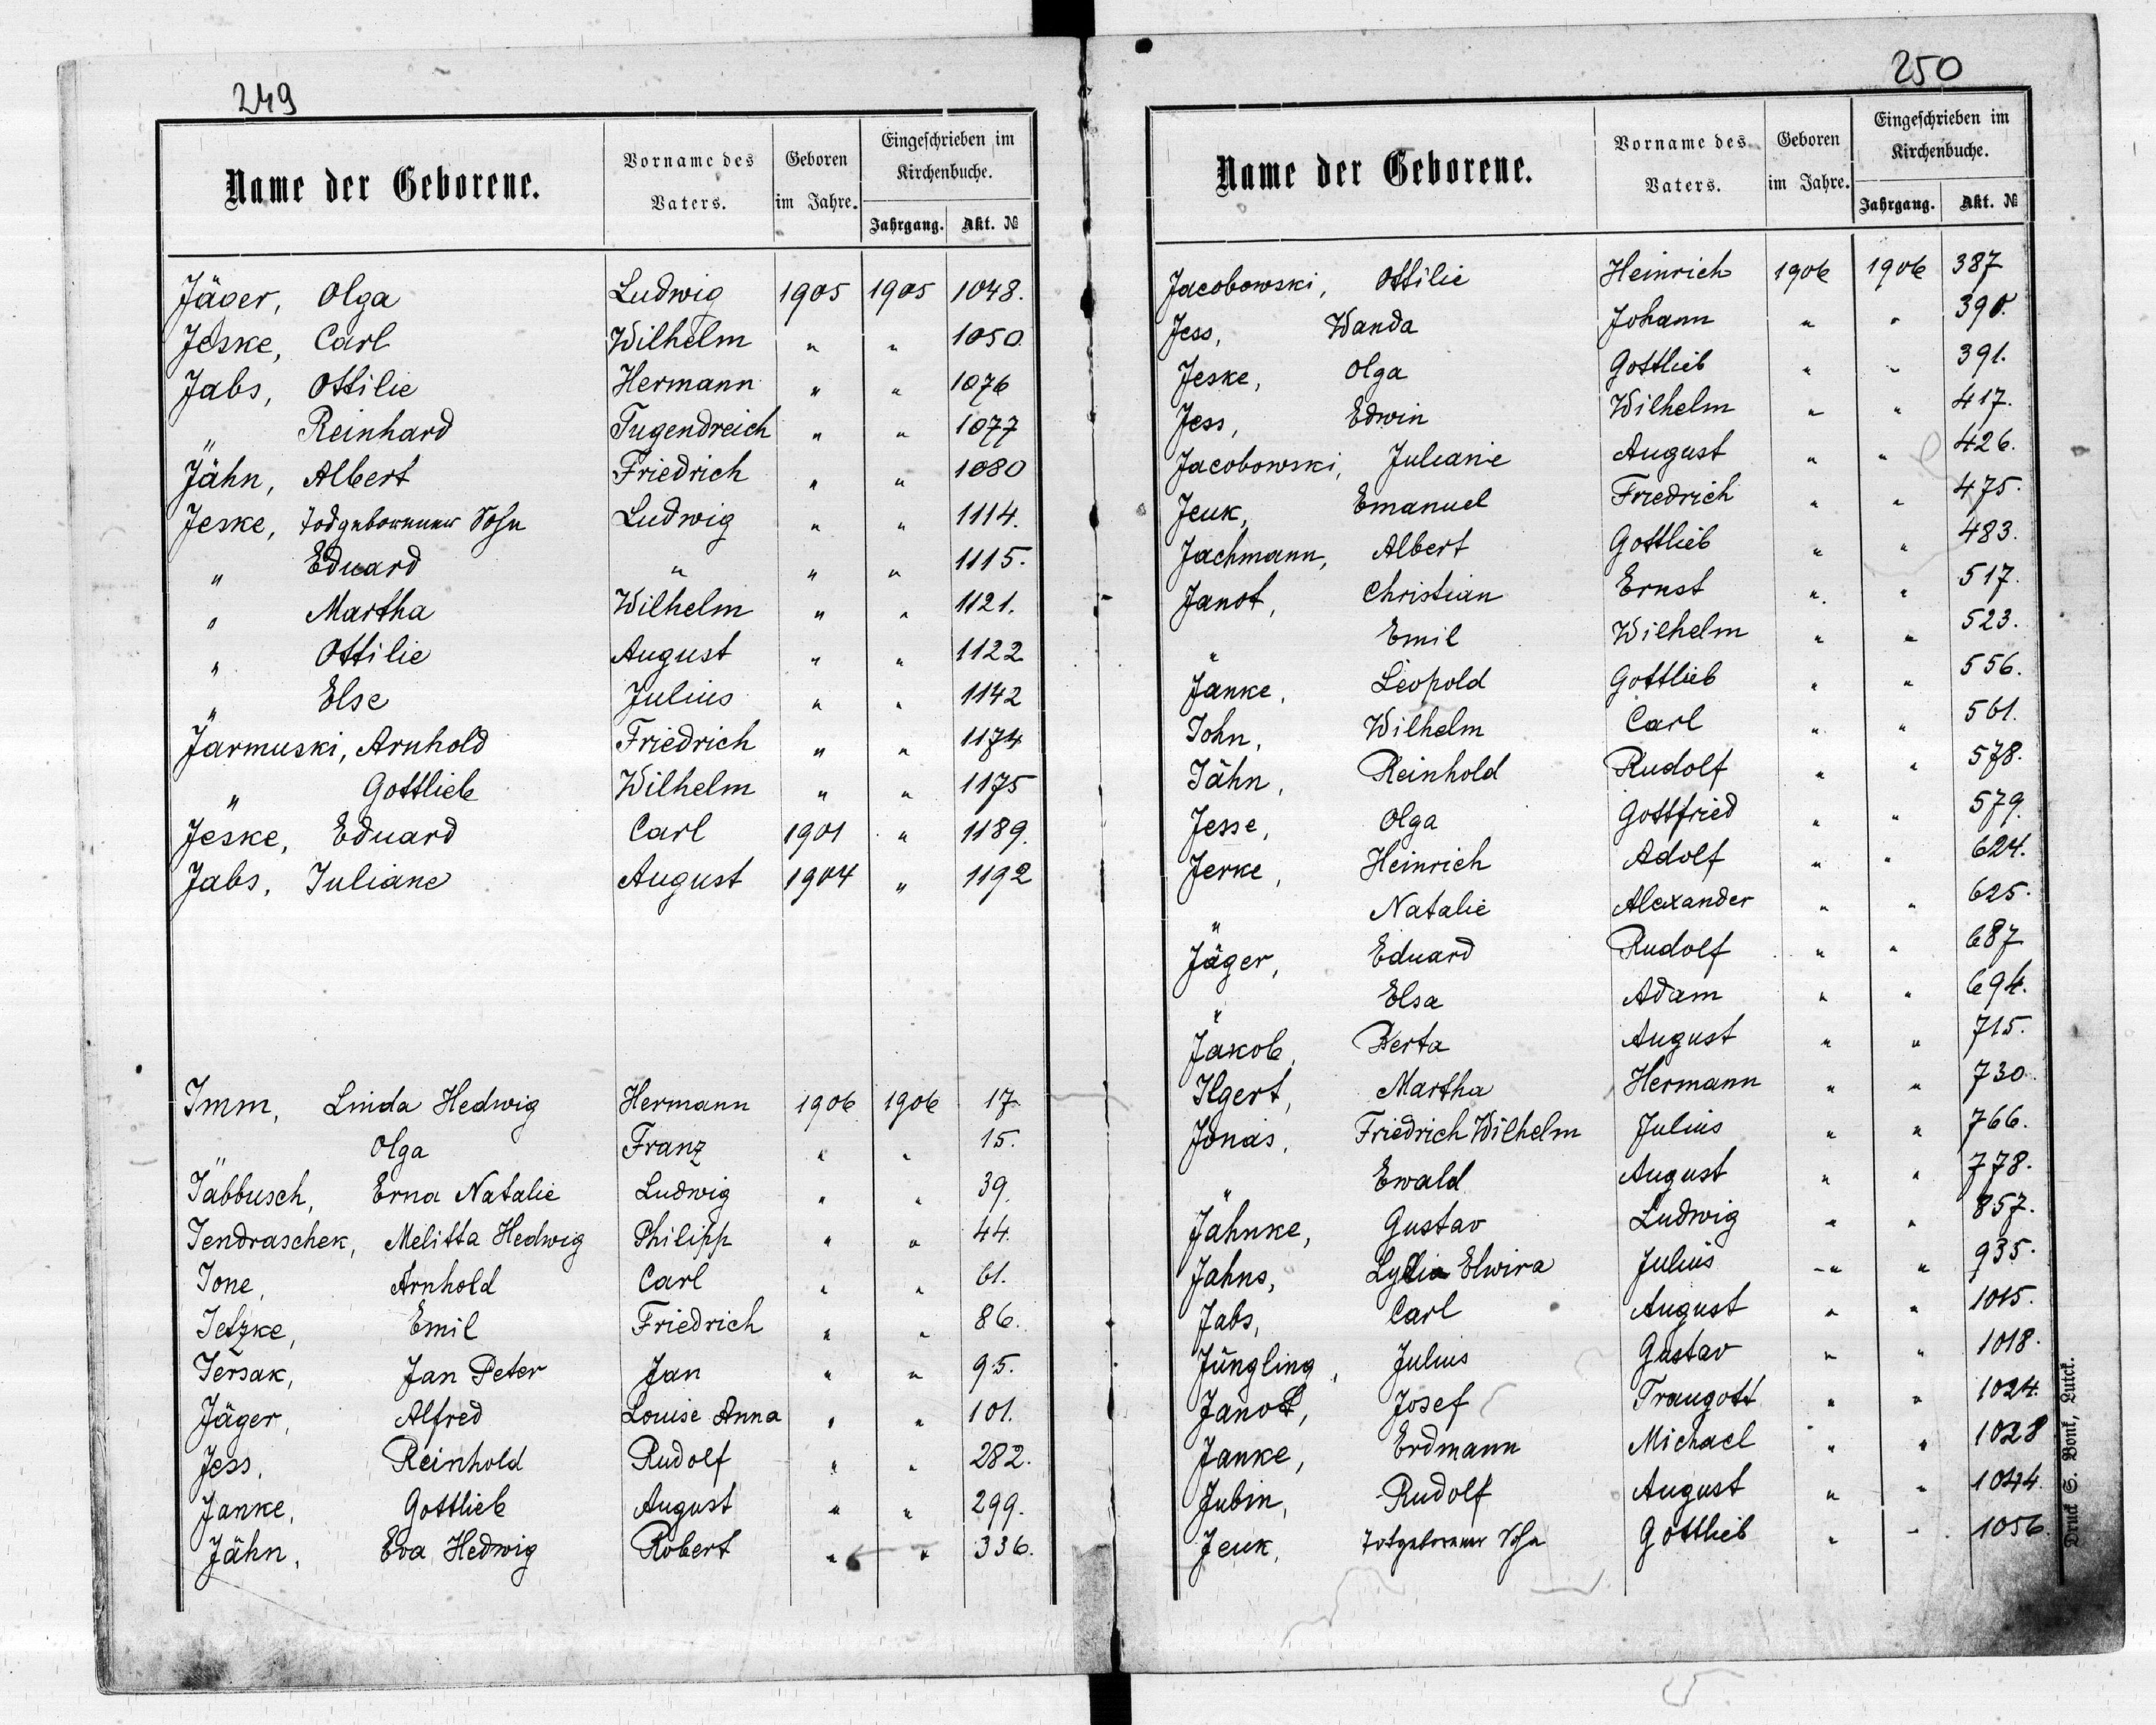 249
Name der Geborene. Vorname des Vaters. Geboren im Jahre. Eingeschrieben im Kirchenbuche. Jahrgang. Akt. №
Jäger, Olga Ludwig 1905 1905 1048.
Jeske, Carl Wilhelm " " 1050.
Jabs, Ottilie Hermann " " 1076
" Reinhard Tugendreich " " 1077
Jähn, Albert Friedrich " " 1080
Jeske, Todgeborenner Sohn Ludwig " " 1114.
" Eduard " " " 1115.
" Martha Wilhelm " " 1121.
" Ottilie August " " 1122
" Else Julius " " 1142
Jarmuski, Arnhold Friedrich " " 1174
" Gottlieb Wilhelm " " 1175
Jeske, Eduard Carl 1901 " 1189.
Jabs, Juliane August 1904 " 1192
Imm, Linda Hedwig Hermann 1906 1906 17
" Olga Franz " " 15.
Jabbusch, Erna Natalie Ludwig " " 39.
Jendraschek, Melitta Hedwig Philipp " " 44.
Jone, Arnhold Carl " " 61.
Jetzke, Emil Friedrich " " 86.
Jersak, Jan Peter Jan " " 95.
Jäger, Alfred Louise Anna " " 101.
Jess, Reinhold Rudolf " " 282.
Janke, Gottlieb August " " 299.
Jähn, Eva Hedwig Robert " " 336.
250
Name der Geborene. Vorname des Vaters. Geboren im Jahre. Eingeschrieben im Kirchenbuche. Jahrgang. Akt. №
Jacobowski, Ottilie Heinrich 1906 1906 387
Jess, Wanda Johann " " 390.
Jeske, Olga Gottlieb " " 391.
Jess, Edwin Wilhelm " " 417.
Jacobowski, Juleane August " " 426.
Jeuk, Emanuel Friedrich " " 475.
Jachmann, Albert Gottlieb " " 483.
Janot, Christian Ernst " " 517.
" Emil Wilhelm " " 523.
Janke, Leopold Gottlieb " " 556.
John, Wilhelm Carl " " 561.
Jähn, Reinhold Rudolf " " 578.
Jesse, Olga Gottfried " " 579.
Jerke, Heinrich Adolf " " 624.
" Natalie Alexander " " 625.
Jäger, Eduard Rudolf " " 687
" Elsa Adam " " 694.
Jakob, Berta August " " 715.
Ilgert, Martha Hermann " " 730
Jonas, Friedrich Wilhelm Julius " " 766.
" Ewald August " " 778.
Jahnke, Gustav Ludwig " " 857.
Jahns, Lydia Elwira Julius " " 935.
Jabs, Carl August " " 1015.
Jüngling, Julius Gustav " " 1018.
Janot, Josef Traugott " " 1024.
Janke, Erdmann Michael " " 1028
Jubin, Rudolf August " " 1044.
Jeuk, Todgeborenner Sohn Gottlieb " " 1056.
Druck S. Bonk, Luck.